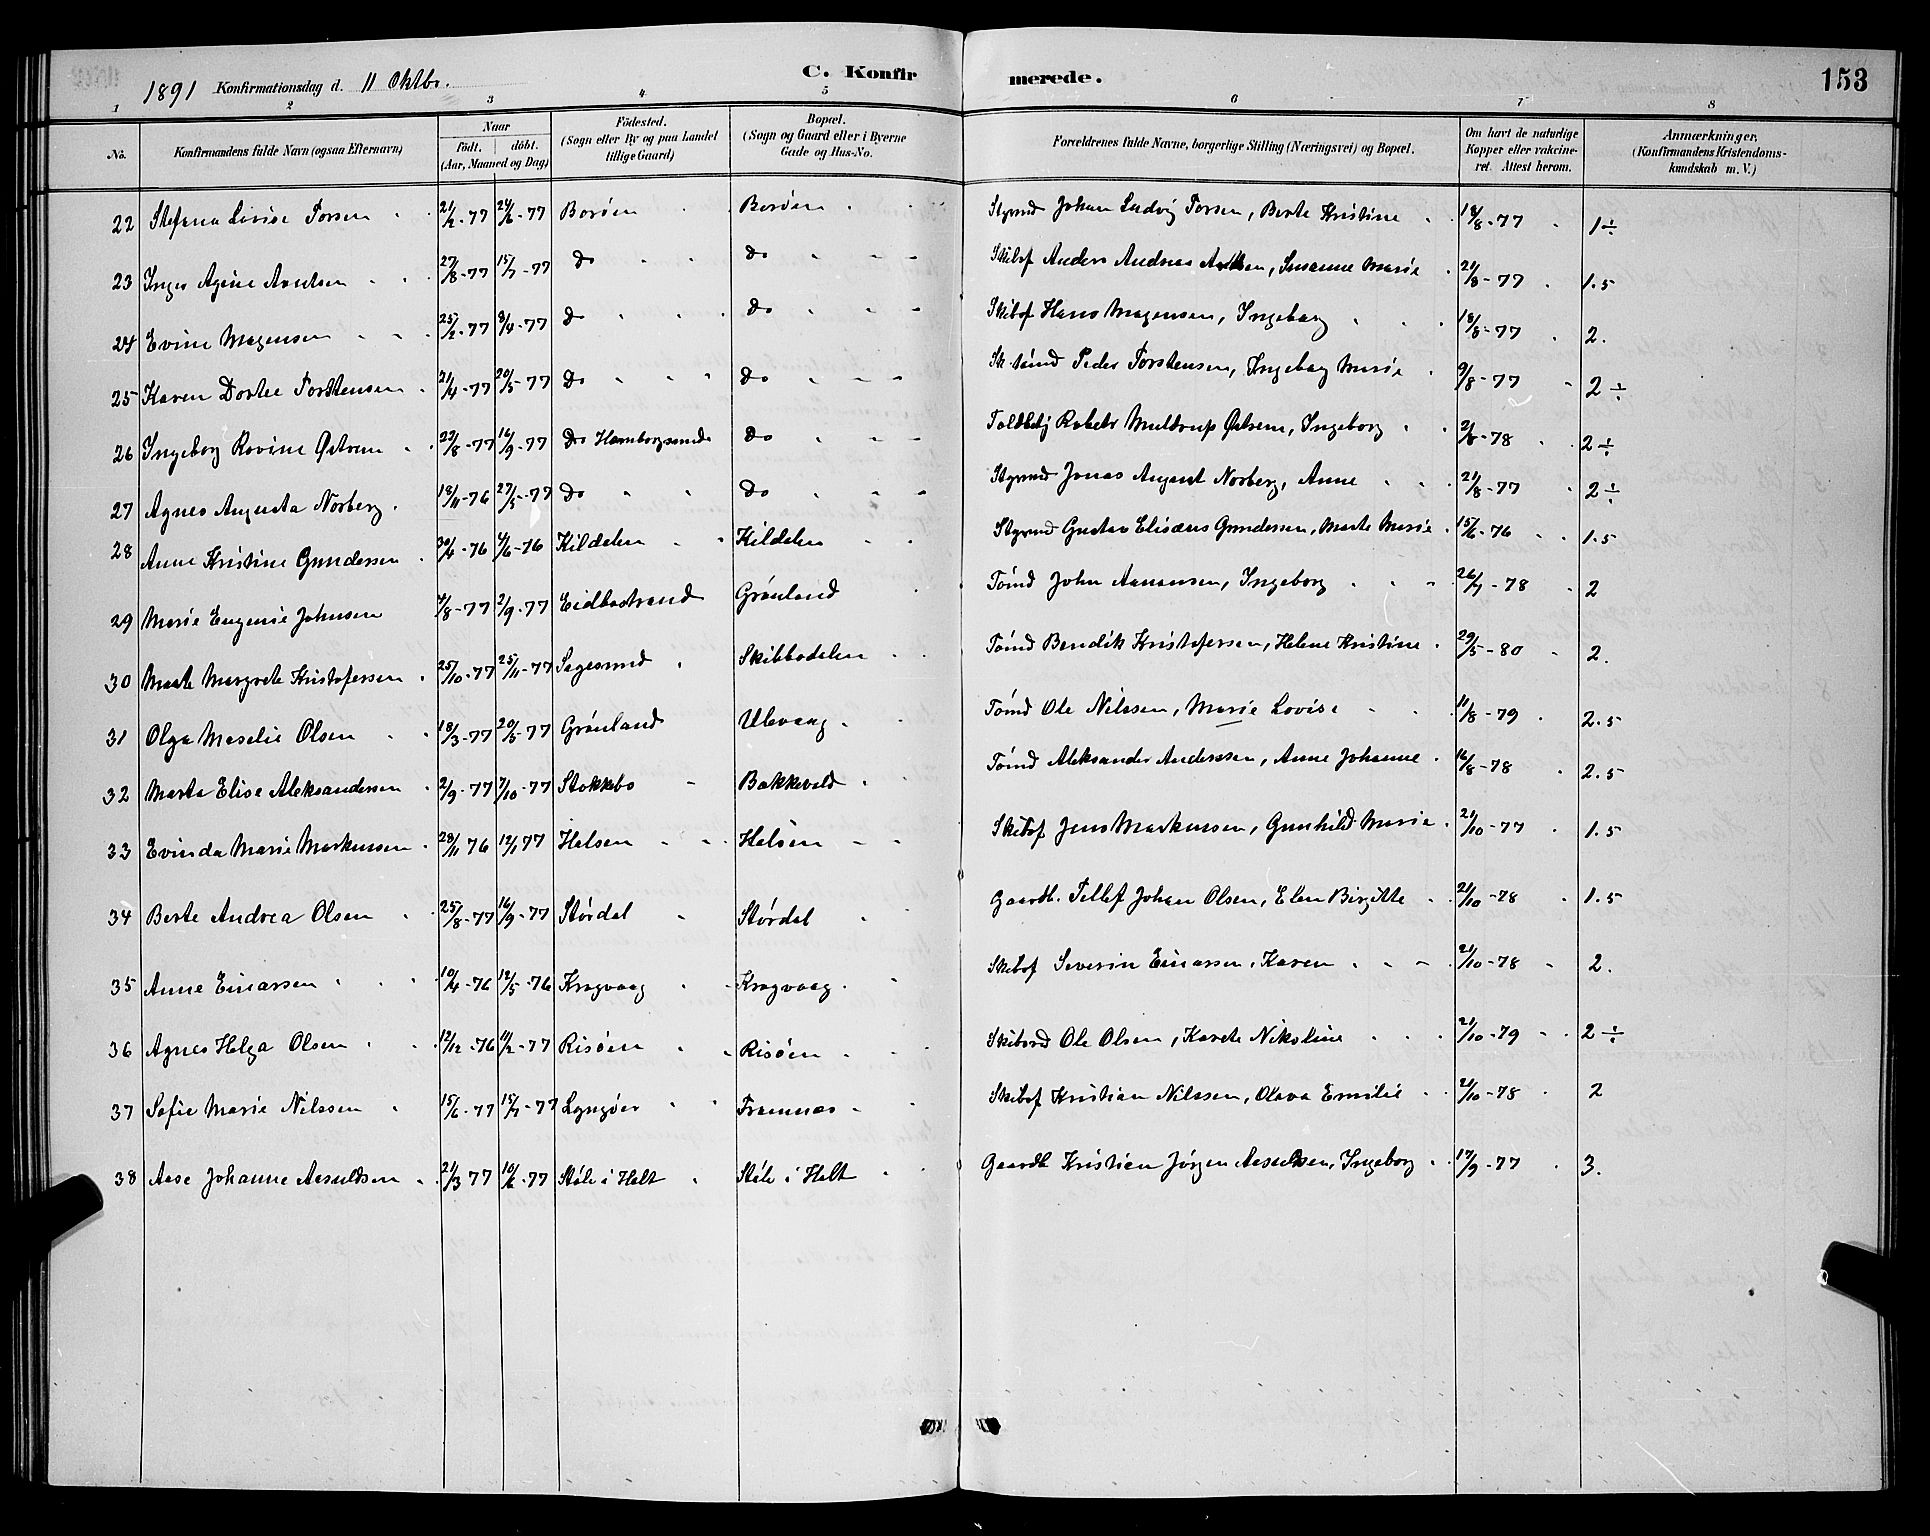 1891 Konfirmationsdag d. 11 Oktbr. C. Konfirmerede. 153
1 2 3 4 5 6 7 8
No. Konfirmandens fulde Navn (ogsaa Efternavn) Naar födt. döbt. (Aar, Maaned og Dag) Födested. (Sogn eller By og paa Landet tillige Gaard) Bopæl. (Sogn og Gaard eller i Byerne Gade og Hus-No. Forældrenes fulde Navne, borgerlige Stilling (Næringsvei) og Bopæl. Om havt de naturlige Kopper eller vakcineret. Attest herom. Anmærkninger, (Konfirmandens Kristendomskundskab m. V.)
22 Stefana Lovise Torsen 21/2-77 24/6-77 Borøen Borøen Styrmd Johan Ludvig Torsen, Berte Kristine 18/8-77 1÷
23 Inger Agine Avelsen 27/8-77 15/7-77 do do Skibsf Anders Andreas, Susanne Marie 21/8-77 1.5
24 Evine Magensen 25/2-77 8/4-77 do do Skibsf Hans Magensen, Ingeborg 18/8-77 2.
25 Karen Dortee Torstensen 21/4-77 20/5-77 do do Peder Torstensen, Ingeborg Marie 9/8-77 2÷
26 Ingeborg Rovine Østrem 23/8-77 16/9-77 do Hamborgsund do Toldbetj Robert Muldrup Østrem, Ingeborg 2/8-78 2÷
27 Agnes Augusta Norberg. 18/11-76 27/5-77 do do Styrmd Jonas August Norberg, Anne 21/8-77 2÷
28 Anne Kristine Gundersen 30/4-76 4/6-76 Kildalen Kildalen Styrmd Gustav Elisæus Gundersen, Marte Marie 15/6-76 1.5
29 Marie Eugenie Johnsen 4/8-77 2/9-77 Eidbostrand Grønland Tømd John Aanonsen, Ingeborg 26/7-78 2
30 Marte Margrete Kristofersen 25/10-77 25/11-77 Sagesund Skibbodalen Tømd Bendik Kristofersen, Helene Kristine 29/5-80 2.
31 Olga Maselie Olsen 18/3-77 20/5-77 Grønland Ulevaag. Tømd Ole Nilssen, Marie Lovise 11/8-79 2.5
32 Marta Elise Aleksandersen 2/9-77 7/10-77 Stokkebo Bakkevold Tømd Aleksander Anderssen, Anne Johanne 16/8-78 2.5
33 Evinda Marie Markussen 28/11 76 12/1 77 Halsen Halsen Skibsf Jens Markussen, Gunhild Marie 21/10-77 1.5
34 Berte Andrea Olsen 25/8-77 16/9-77 Størdal Størdal Gaardb. Tellef Johan Olsen, Elen Birgitte 21/10-78 1.5
35 Anne Einarsen 10/4-76 12/5-76 Kragvaag Kragvaag. Skibsf Severin Einarsen, Karen 21/10-78 2.
36 Agnes Helga Olsen 12/12-76 11/2-77 Risøen Risøen Ole Olsen, Karete Nikoline 21/10-79 2÷
37 Sofie Marie Nilssen 15/6-77 15/7-77 Lyngøer Framnas Skibsf Kristian Nilssen, Olava Emilie 21/10-78 2
38 Aase Johanne Aasuldsen 21/3 77 10/6-77 Støle i Holt Støle i Holt Gaardb Kristian Jørgen Aasuldsen, Ingeborg 17/9-77 3.